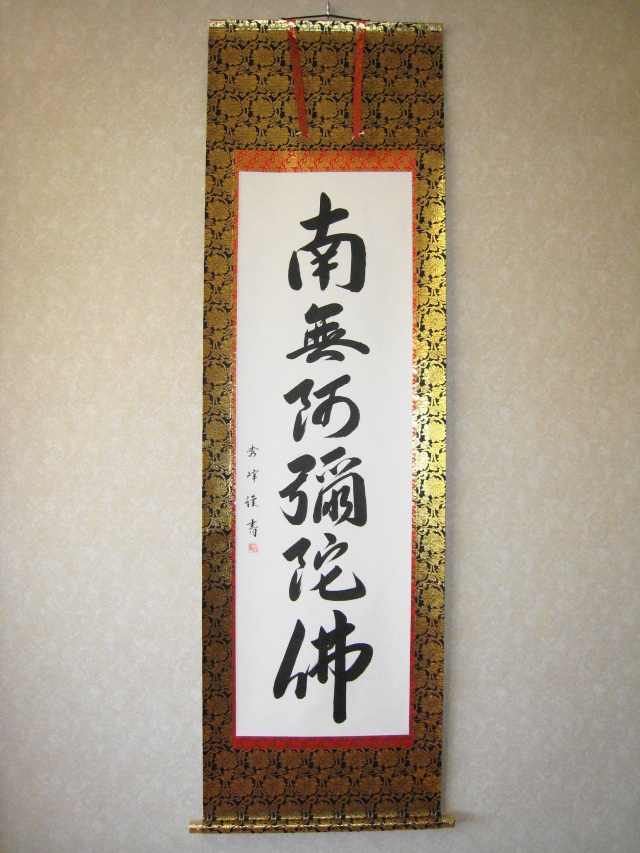 南無阿彌陀佛
秀峰徑書